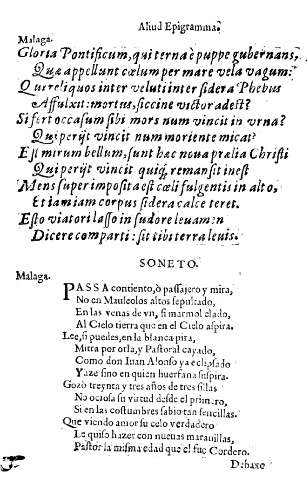 Aliud Epigramma.
Malaga.
Gloria Pontificum, qui ternæ puppe gubernans,
Quæ appellunt cælum per mare vela vagum:
Qui reliquos inter veluti inter sidera Phebus
Affulxit: mortus, siccine victor adest?
Si fert occasum sibi mors num vincit in vrna?
Qui perijt vincit num moriente micat?
Est mirum bellum, sunt hac noua prælia Christi
Qui perijt vincit quiq; remansit inest
Mens superimposita est cæli fulgentis in alto,
Et iam iam corpus sidera calce teret.
Esto viatori lasso in sudore leuamen
Dicere comparti: sit tibi terra leuis.
SONETO.
Malaga.
PASSA contiento, ò passajero y mira,
No en Mauseolos altos sepultado,
En las venas de vn, si marmol elado,
Al Cielo tierra que en el Cielo aspira.
Lee, si puedes, en la blanca pira,
Mitra por orla, y Pastoral cayado,
Como don Iuan Alonso ya eclipsado
Yaze sino en quien huerfana suspira.
Gozò treynta y tres años de tres sillas
No ociosa su virtud desde el primero,
Si en las costumbres sabio tan sencillas.
Que viendo amor su celo verdadero
Le quiso hazer con nueuas marauillas,
Pastor la misma edad que el fue Cordero.
Debaxo